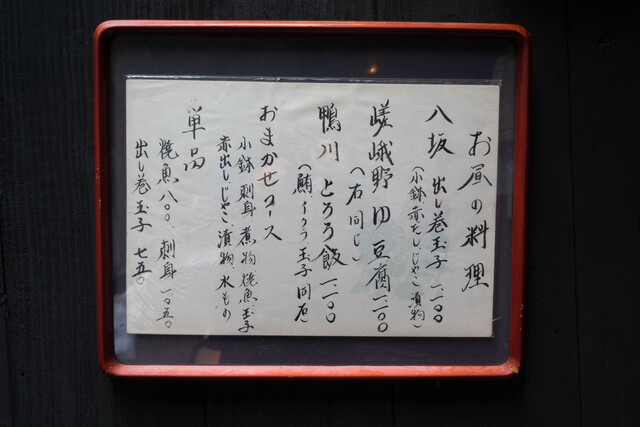 お昼の料理
八坂 出し巻玉子 一、一〇〇
(小鉢赤だし、じゃこ、漬物)
嵯峨野 ゆ豆腐 一、一〇〇
(右同じ)
鴨川 とろろ飯 一、一〇〇
(鮪、イクラ、玉子 同右)
おまかせコース
小鉢 刺身 煮物 焼魚 玉子
赤出し、じゃこ、漬物、水もの
単品
焼魚 八〇〇、刺身 一〇五〇
出し巻玉子 七五〇